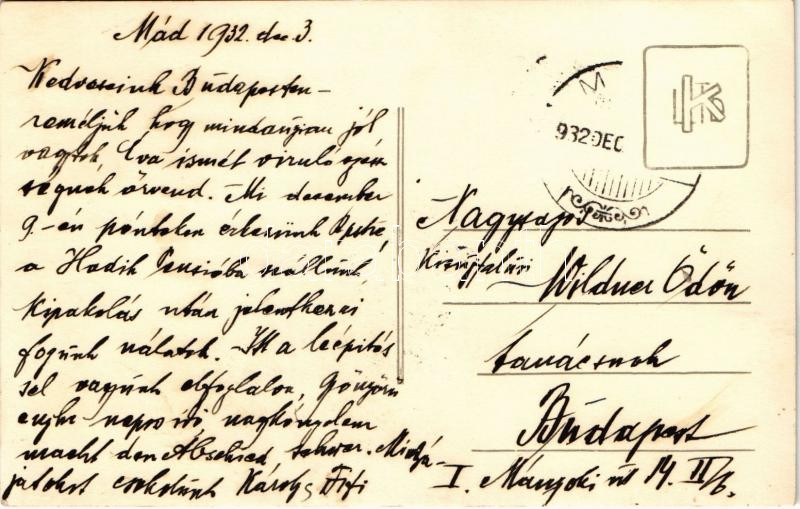 Mád 1932. dec 3.
Kedveseink Budapesten –
reméljük hogy mindanyian jól
vagytok, Éva ismét viruló egész
ségnek örvend. Mi december
9.-én pénteken érkezünk Pestre,
a Hadik Penzióba szállunk
Kipakolás után jelentkezni
fogunk nálatok. Itt a leépítés
sel vagyunk elfoglalva,
macht den Abschied schwer.
csókolunk Károly Fifi
M
932 DEC
Nagyságos
Wildner Ödön
tanácsnok
Budapest
I. Mányoki út 14. II/6.